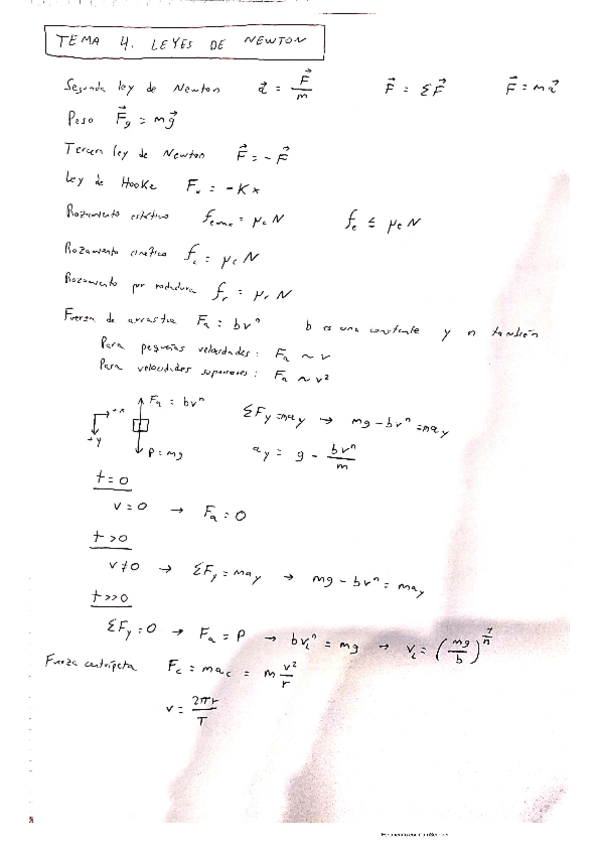 TEMA 4. LEYES DE NEWTON
Segunda ley de Newton a⃗ = F⃗/m F⃗ = ΣF⃗ F⃗ = ma⃗
Peso F⃗g = mg⃗
Tercera ley de Newton F⃗ = -F⃗
Ley de Hooke Fx = -Kx
Rozamiento estático femax = μeN fe ≤ μeN
Rozamiento cinético fc = μcN
Rozamiento por rodadura fr = μrN
Fuerza de arrastre Fa = bvⁿ b es una constante y n también
Para pequeñas velocidades: Fa ~ v
Para velocidades superiores: Fa ~ v²
+x +y Fa = bvⁿ P = mg
ΣFy = may → mg - bvⁿ = may
ay = g - bvⁿ/m
t = 0
v = 0 → Fa = 0
t > 0
v ≠ 0 → ΣFy = may → mg - bvⁿ = may
t >> 0
ΣFy = 0 → Fa = P → bvLⁿ = mg → vL = (mg/b)^(1/n)
Fuerza centrípeta Fc = mac = m v²/r
v = 2πr/T